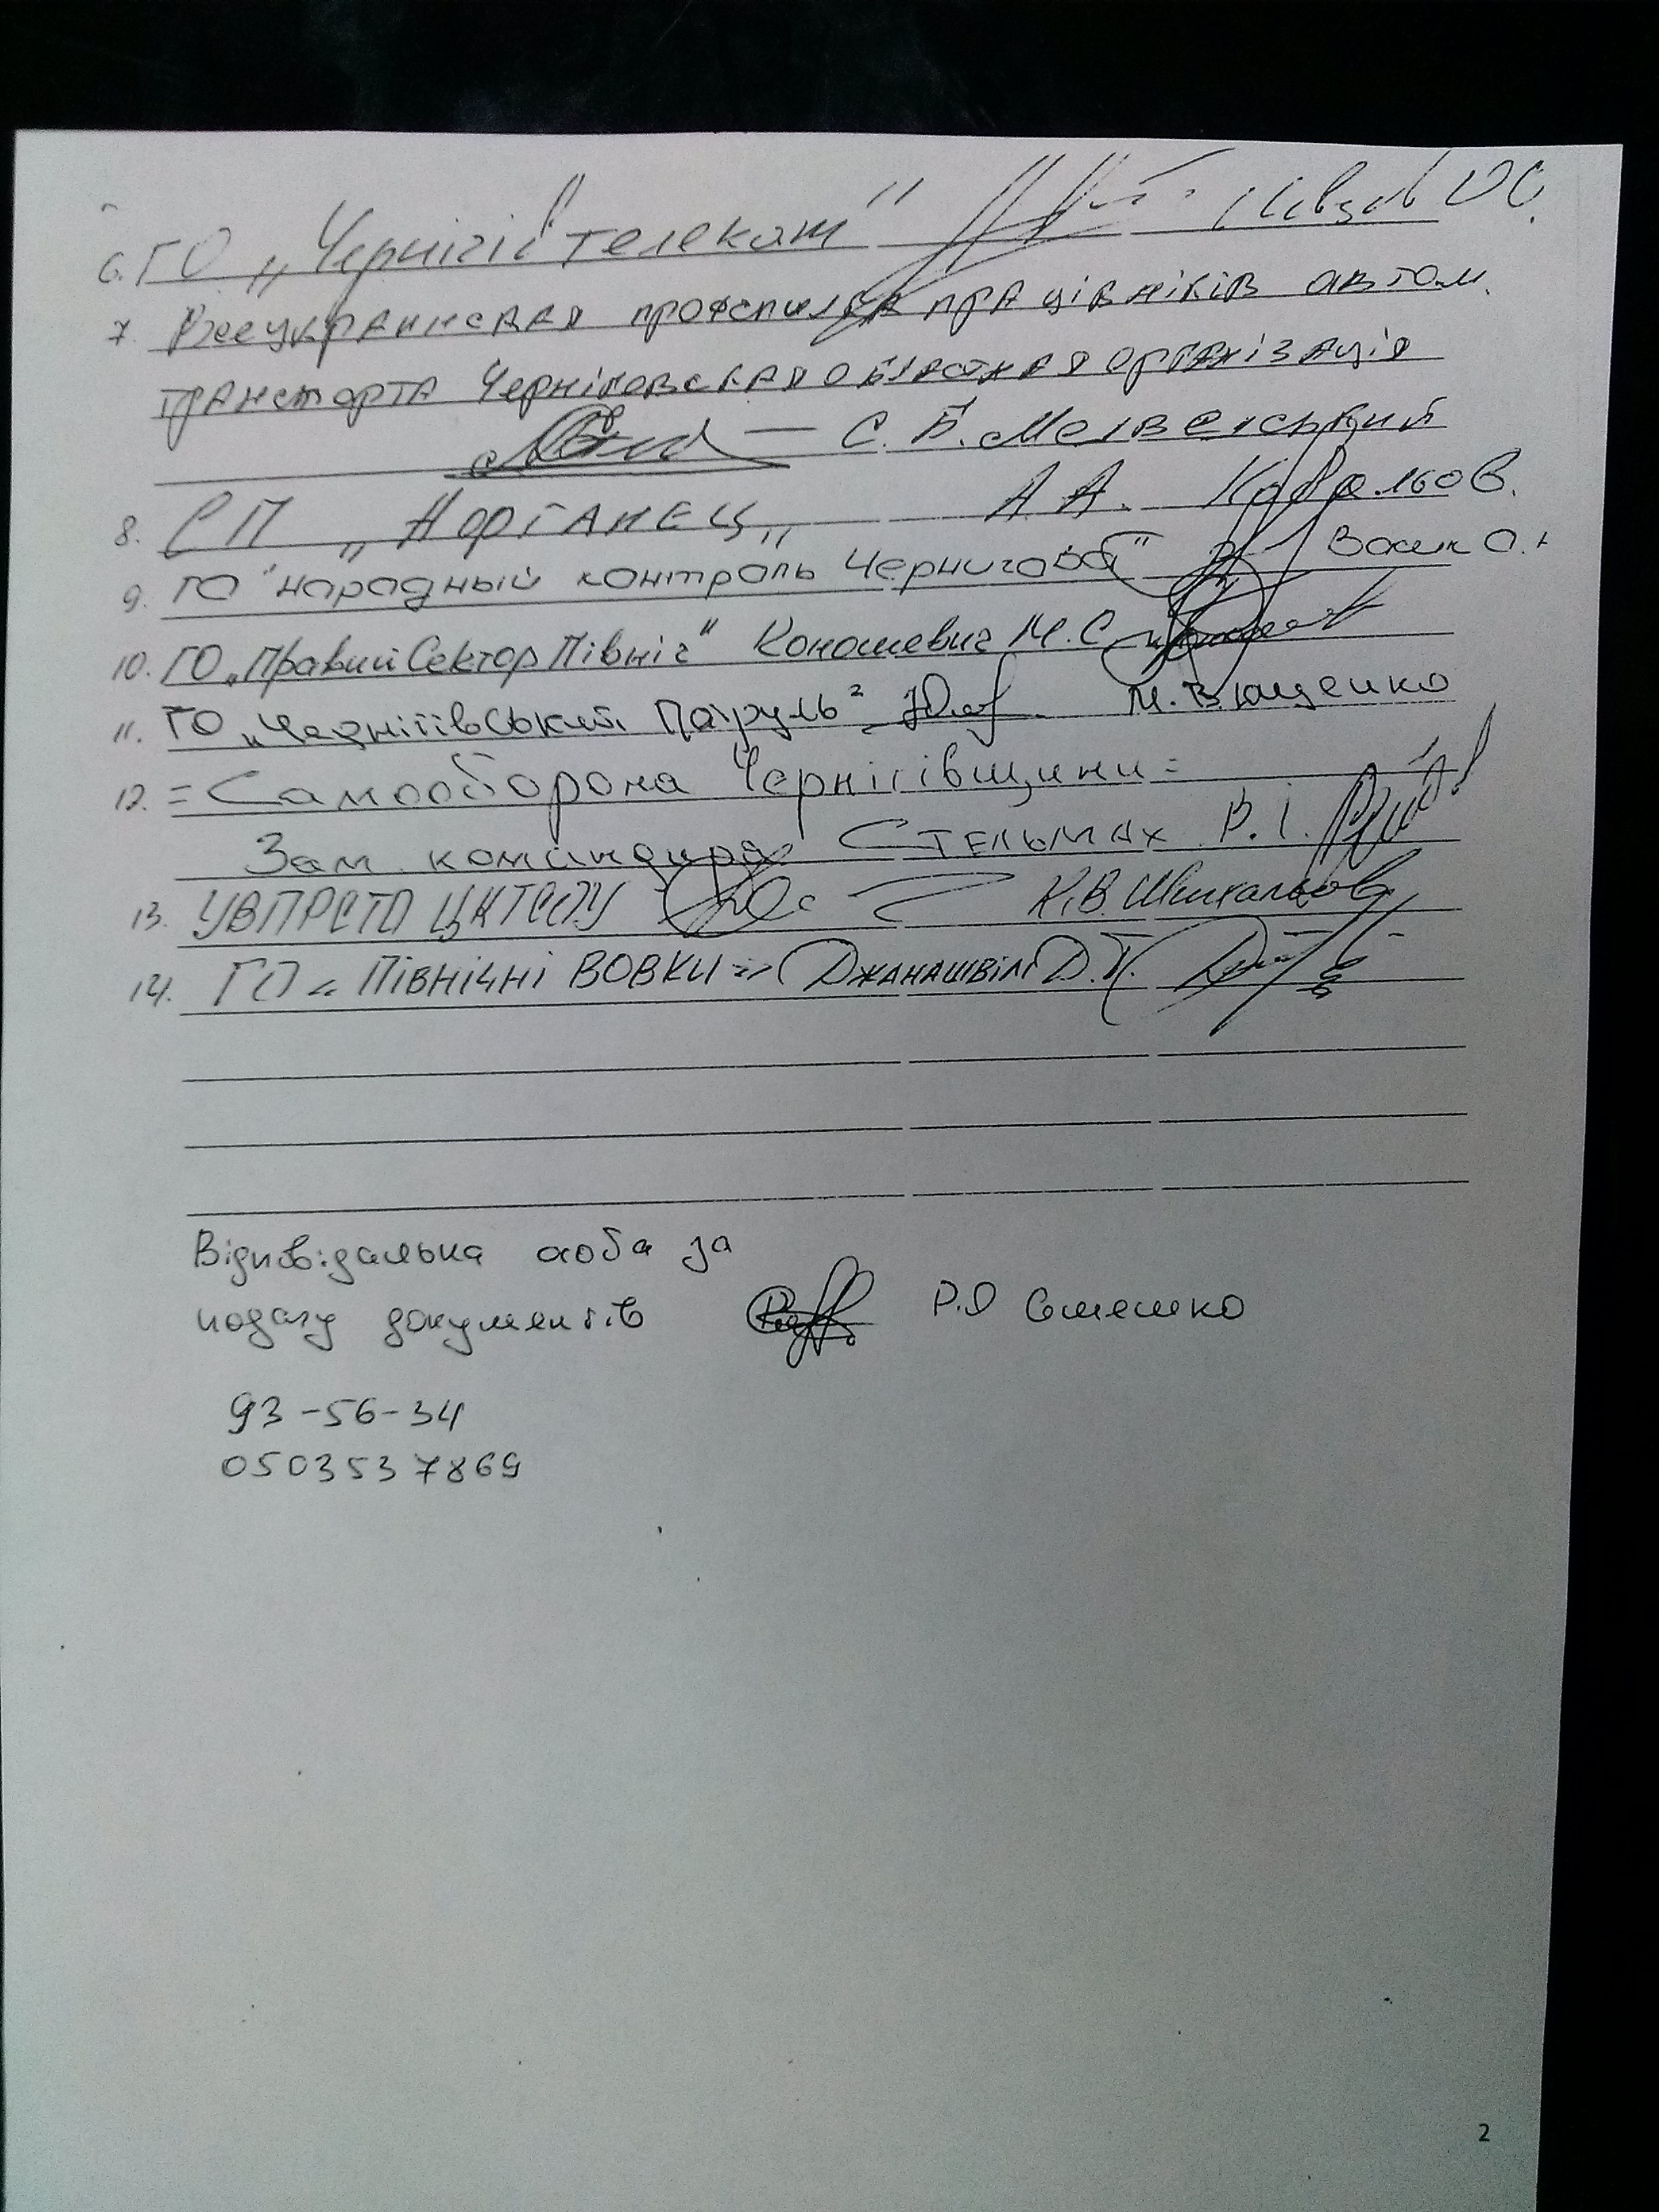 6. ГО „Чернігів телеком"
7. Всеукраинская профспилка працівніків автом.
транспорта Черніговская областная організація
С.Б. Мелвенський
8. СП „Норганец„ А.А. Ковальов.
9. ГО "Народный контроль Чернигова"
10. ГО „Правий Сектор Північ" Коношевич М.С
11. ГО „Чернігівський Патруль" М.В. Ющенко
12. = Самооборона Чернігівщини =
Зам командира Стельмах В.І.
13. К.В. Шихальов
14. ГО «ПІВНІЧНІ ВОВКИ» ДЖАНАШВІЛІ Д.
Відповідальна особа за
подачу документів Р.Я
93-56-34
0503537869
2